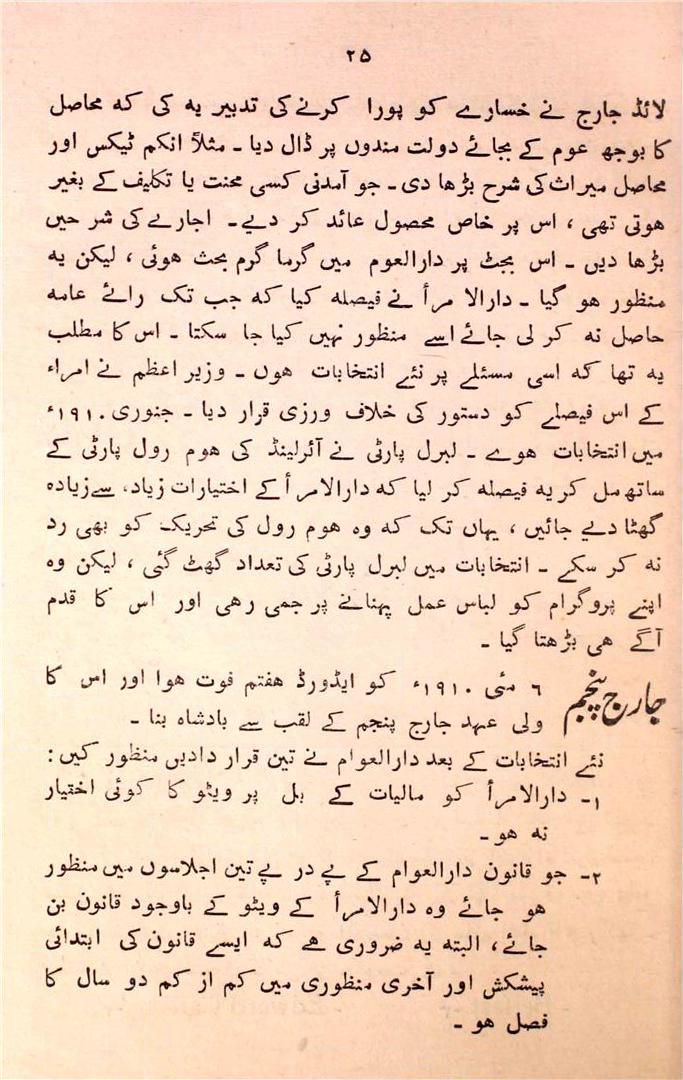 ۲۵
لائڈ جارج نے خسارے کو پورا کرنے کی تدبیر یہ کی کہ محاصل
کا بوجھ عوم کے بجائے دولت مندوں پر ڈال دیا ۔ مثلاً انکم ٹیکس اور
محاصل میراث کی شرح بڑھا دی ۔ جو آمدنی کسی محنت یا تکلیف کے بغیر
ہوتی تھی ، اس پر خاص محصول عائد کر دیے ۔ اجارے کی شر حیں
بڑھا دیں ۔ اس بجٹ پر دارالعوم میں گرما گرم بحث ہوئی ، لیکن یہ
منظور ہو گیا ۔ دارالا مرأ نے فیصلہ کیا کہ جب تک رائے عامہ
حاصل نہ کر لی جائے اسے منظور نہیں کیا جا سکتا ۔ اس کا مطلب
یہ تھا کہ اسی مسئلے پر نئے انتخابات ہوں ۔ وزیر اعظم نے امراء
کے اس فیصلے کو دستور کی خلاف ورزی قرار دیا ۔ جنوری ۱۹۱۰ء
میں انتخابات ہوے ۔ لبرل پارٹی نے آئرلینڈ کی ہوم رول پارٹی کے
ساتھ مل کر یہ فیصلہ کر لیا کہ دارالامرأ کے اختیارات زیادہ سے زیادہ
گھٹا دیے جائیں ، یہاں تک کہ وہ ہوم رول کی تحریک کو بھی رد
نہ کر سکے ۔ انتخابات میں لبرل پارٹی کی تعداد گھٹ گئی ، لیکن وہ
اپنے پروگرام کو لباس عمل پہنانے پر جمی رہی اور اس کا قدم
آگے ہی بڑھتا گیا ۔
جارج پنجم
۶ مئی ۱۹۱۰ء کو ایڈورڈ ہفتم فوت ہوا اور اس کا
ولی عہد جارج پنجم کے لقب سے بادشاہ بنا ۔
نئے انتخابات کے بعد دارالعوام نے تین قرار دادیں منظور کیں :
۱۔ دارالامرأ کو مالیات کے بل پر ویٹو کا کوئی اختیار
نہ ہو ۔
۲۔ جو قانون دارالعوام کے پے در پے تین اجلاسوں میں منظور
ہو جائے وہ دارالامرأ کے ویٹو کے باوجود قانون بن
جائے ، البتہ یہ ضروری ہے کہ ایسے قانون کی ابتدائی
پیشکش اور آخری منظوری میں کم از کم دو سال کا
فصل ہو ۔